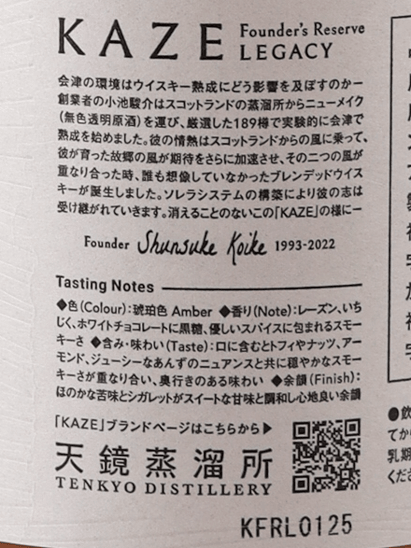 KAZE Founder's Reserve LEGACY
会津の環境はウイスキー熟成にどう影響を及ぼすのかー
創業者の小池駿介はスコットランドの蒸溜所からニューメイク
(無色透明原酒)を運び、厳選した189樽で実験的に会津で
熟成を始めました。彼の情熱はスコットランドからの風に乗って、
彼が育った故郷の風が期待をさらに加速させ、その二つの風が
重なり合った時、誰も想像していなかったブレンデッドウイス
キーが誕生しました。ソレラシステムの構築により彼の志は
受け継がれていきます。消えることのないこの「KAZE」の様にー
Founder Shunsuke Koike 1993-2022
Tasting Notes
◆色(Colour):琥珀色 Amber ◆香り(Note):レーズン、いち
じく、ホワイトチョコレートに黒糖、優しいスパイスに包まれるスモー
キーさ ◆含み・味わい(Taste):口に含むとトフィやナッツ、アー
モンド、ジューシーなあんずのニュアンスと共に穏やかなスモー
キーさが重なり合い、奥行きのある味わい ◆余韻(Finish):
ほのかな苦味とシガレットがスイートな甘味と調和し心地良い余韻
「KAZE」ブランドページはこちらから▶
天鏡蒸溜所
TENKYO DISTILLERY
KFRL0125
●飲
てか
乳期
くださ